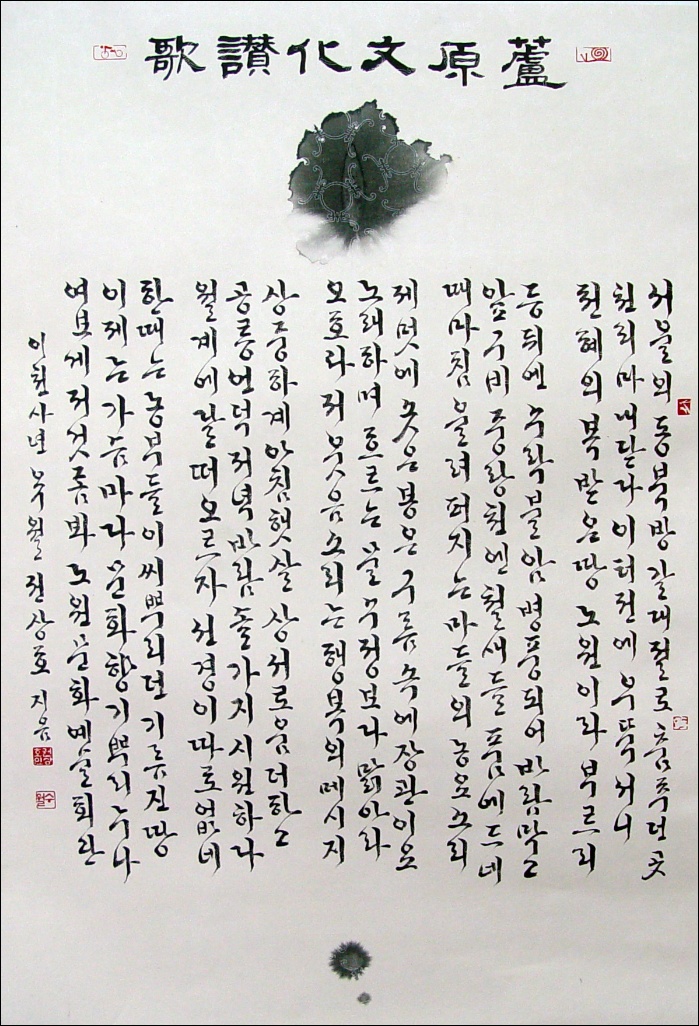 蘆原文化讃歌
서울의 동북방 갈대절로 춤추던 곳
천리마 내닫다 이 터전에 우뚝 서니
천혜의 복 받은 땅 노원이라 부르리
등 뒤엔 수락 불암 병풍되어 바람막고
앞 구비 중랑천엔 철새들 품에 드네
때마침 울려퍼지는 마들의 농요소리
제멋에 솟은 봉은 구름 속에 장관이요
노래하며 흐르는 물 수정보다 맑아라
오호라 저 웃음소리는 행복의 메시지
상중하계 아침햇살 상서로움 더하고
공릉언덕 저녁 바람 솔가지 시원하다
월계에 달 떠오르자 선경이 따로 없네
한때는 농부들이 씨뿌리던 기름진 땅
이제는 가슴마다 문화향기 뿌리누나
여보게 저것 좀 봐 노원문화예술회관
이천사년 유월 전상호 지음